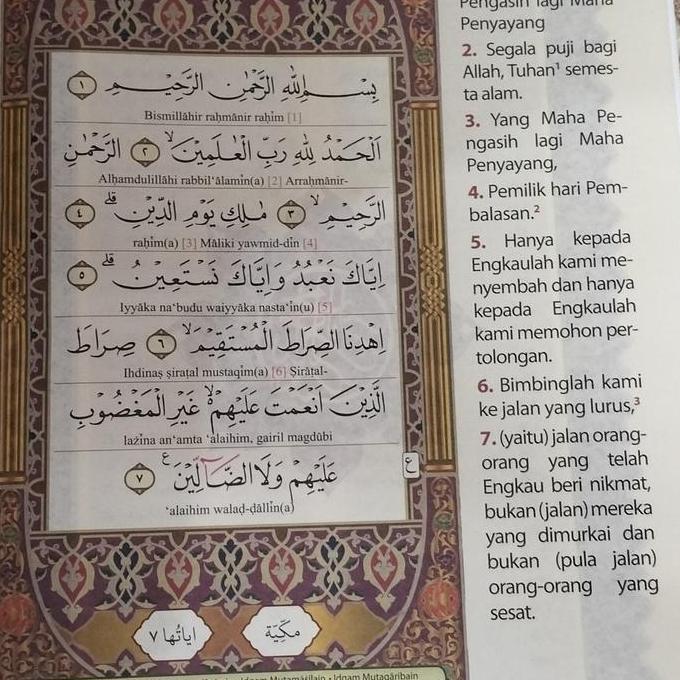 بِسْمِ اللّٰهِ الرَّحْمٰنِ الرَّحِيْمِ ١
Bismillāhir raḥmānir raḥim [1]
اَلْحَمْدُ لِلّٰهِ رَبِّ الْعٰلَمِيْنَۙ ٢ الرَّحْمٰنِ
Alḥamdulillāhi rabbil‘ālamin(a) [2] Arraḥmānir-
الرَّحِيْمِۙ ٣ مٰلِكِ يَوْمِ الدِّيْنِۗ ٤
raḥim(a) [3] Māliki yawmid-din [4]
اِيَّاكَ نَعْبُدُ وَاِيَّاكَ نَسْتَعِيْنُۗ ٥
Iyyāka na‘budu waiyyāka nasta‘in(u) [5]
اِهْدِنَا الصِّرَاطَ الْمُسْتَقِيْمَۙ ٦ صِرَاطَ
Ihdinaṣ ṣiraṭal mustaqim(a) [6] Ṣirāṭal-
الَّذِيْنَ اَنْعَمْتَ عَلَيْهِمْ ەۙ غَيْرِ الْمَغْضُوْبِ
lażina an‘amta ‘alaihim, gairil magdūbi
عَلَيْهِمْ وَلَا الضَّاۤلِّيْنَ ࣖ ٧
‘alaihim walaḍ-ḍāllin(a)
ع
مكية
اياتها ٧
Idgam Mutamāṡilain • Idgam Mutaqāribain
Pengasih lagi Maha
Penyayang
2. Segala puji bagi
Allah, Tuhan¹ semes-
ta alam.
3. Yang Maha Pe-
ngasih lagi Maha
Penyayang,
4. Pemilik hari Pem-
balasan.²
5. Hanya kepada
Engkaulah kami me-
nyembah dan hanya
kepada Engkaulah
kami memohon per-
tolongan.
6. Bimbinglah kami
ke jalan yang lurus,³
7. (yaitu) jalan orang-
orang yang telah
Engkau beri nikmat,
bukan (jalan) mereka
yang dimurkai dan
bukan (pula jalan)
orang-orang yang
sesat.